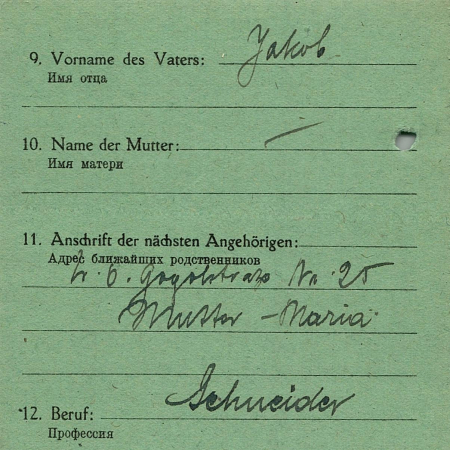 9. Vorname des Vaters: Jakob
Имя отца
10. Name der Mutter: —
Имя матери
11. Anschrift der nächsten Angehörigen:
Адрес ближайших родственников
Gogolstraße No. 25
Mutter - Maria
Schneider
12. Beruf:
Профессия